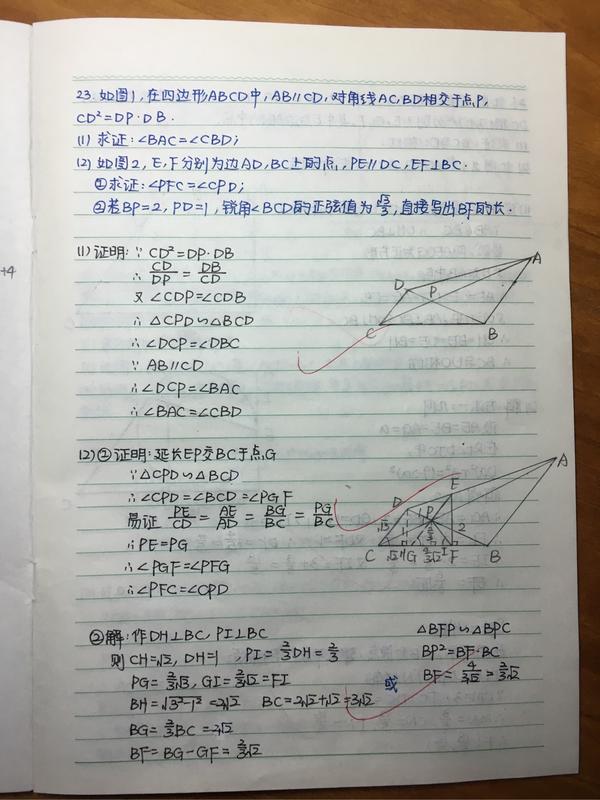 23. 如图1, 在四边形ABCD中, AB∥CD, 对角线AC, BD相交于点P,
CD²=DP·DB.
(1) 求证: ∠BAC=∠CBD;
(2) 如图2, E, F分别为边AD, BC上的点, PE∥DC, EF⊥BC.
①求证: ∠PFC=∠CPD;
②若BP=2, PD=1, 锐角∠BCD的正弦值为√3/3, 直接写出BF的长.
+4
(1) 证明: ∵ CD²=DP·DB
∴ CD/DP = DB/CD
又 ∠CDP=∠CDB
∴ △CPD∽△BCD
∴ ∠DCP=∠DBC
∵ AB∥CD
∴ ∠DCP=∠BAC
∴ ∠BAC=∠CBD
A
D
P
C
B
(2) ② 证明: 延长EP交BC于点G
∵△CPD∽△BCD
∴ ∠CPD=∠BCD=∠PGF
易证 PE/CD = AE/AD = BG/BC = PG/BC
∴ PE=PG
∴ ∠PGF=∠PFG
∴ ∠PFC=∠CPD
A
E
D
P
√3
1
2
C
√2
H
G
I
F
B
②解: 作DH⊥BC, PI⊥BC
则 CH=√2, DH=1, PI=2/3DH=2/3
PG=2/3√3, GI=2/3√2=FI
BH=√3²-1²=2√2 BC=2√2+√2=3√2
BG=2/3BC=2√2
BF=BG-GF=2/3√2
或
△BFP∽△BPC
BP²=BF·BC
BF=4/3√2=2/3√2